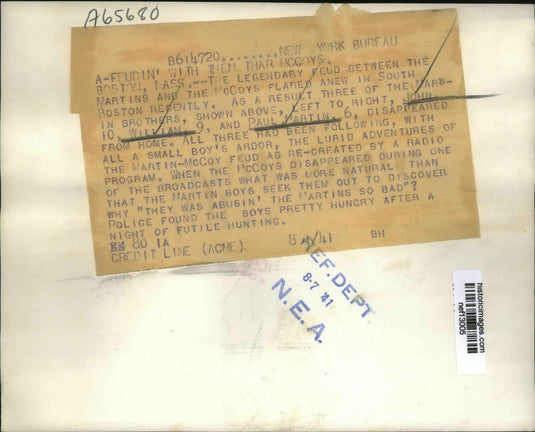 A65680
B614720........NEW YORK BUREAU
A-FEUDIN' WITH THEM THAR MCCOYS.
BOSTON, MASS.--THE LEGENDARY FEUD BETWEEN THE
MARTINS AND THE MCCOYS FLARED ANEW IN SOUTH
BOSTON RECENTLY. AS A RESULT THREE OF THE MART-
IN BROTHERS, SHOWN ABOVE, LEFT TO RIGHT, JOHN,
10, WILLIAM, 9, AND PAUL MARTIN, 6, DISAPPEARED
FROM HOME. ALL THREE HAD BEEN FOLLOWING, WITH
ALL A SMALL BOY'S ARDOR, THE LURID ADVENTURES OF
THE MARTIN-MCCOY FEUD AS RE-CREATED BY A RADIO
PROGRAM. WHEN THE MCCOYS DISAPPEARED DURING ONE
OF THE BROADCASTS WHAT WAS MORE NATURAL THAN
THAT THE MARTIN BOYS SEEK THEM OUT TO DISCOVER
WHY "THEY WAS ABUSIN' THE MARTINS SO BAD"?
POLICE FOUND THE BOYS PRETTY HUNGRY AFTER A
NIGHT OF FUTILE HUNTING.
80 1A
CREDIT LINE (ACME) 8/41 BH
REF. DEPT
8-7 '41
N.E.A.
historicimages.com
nef13005